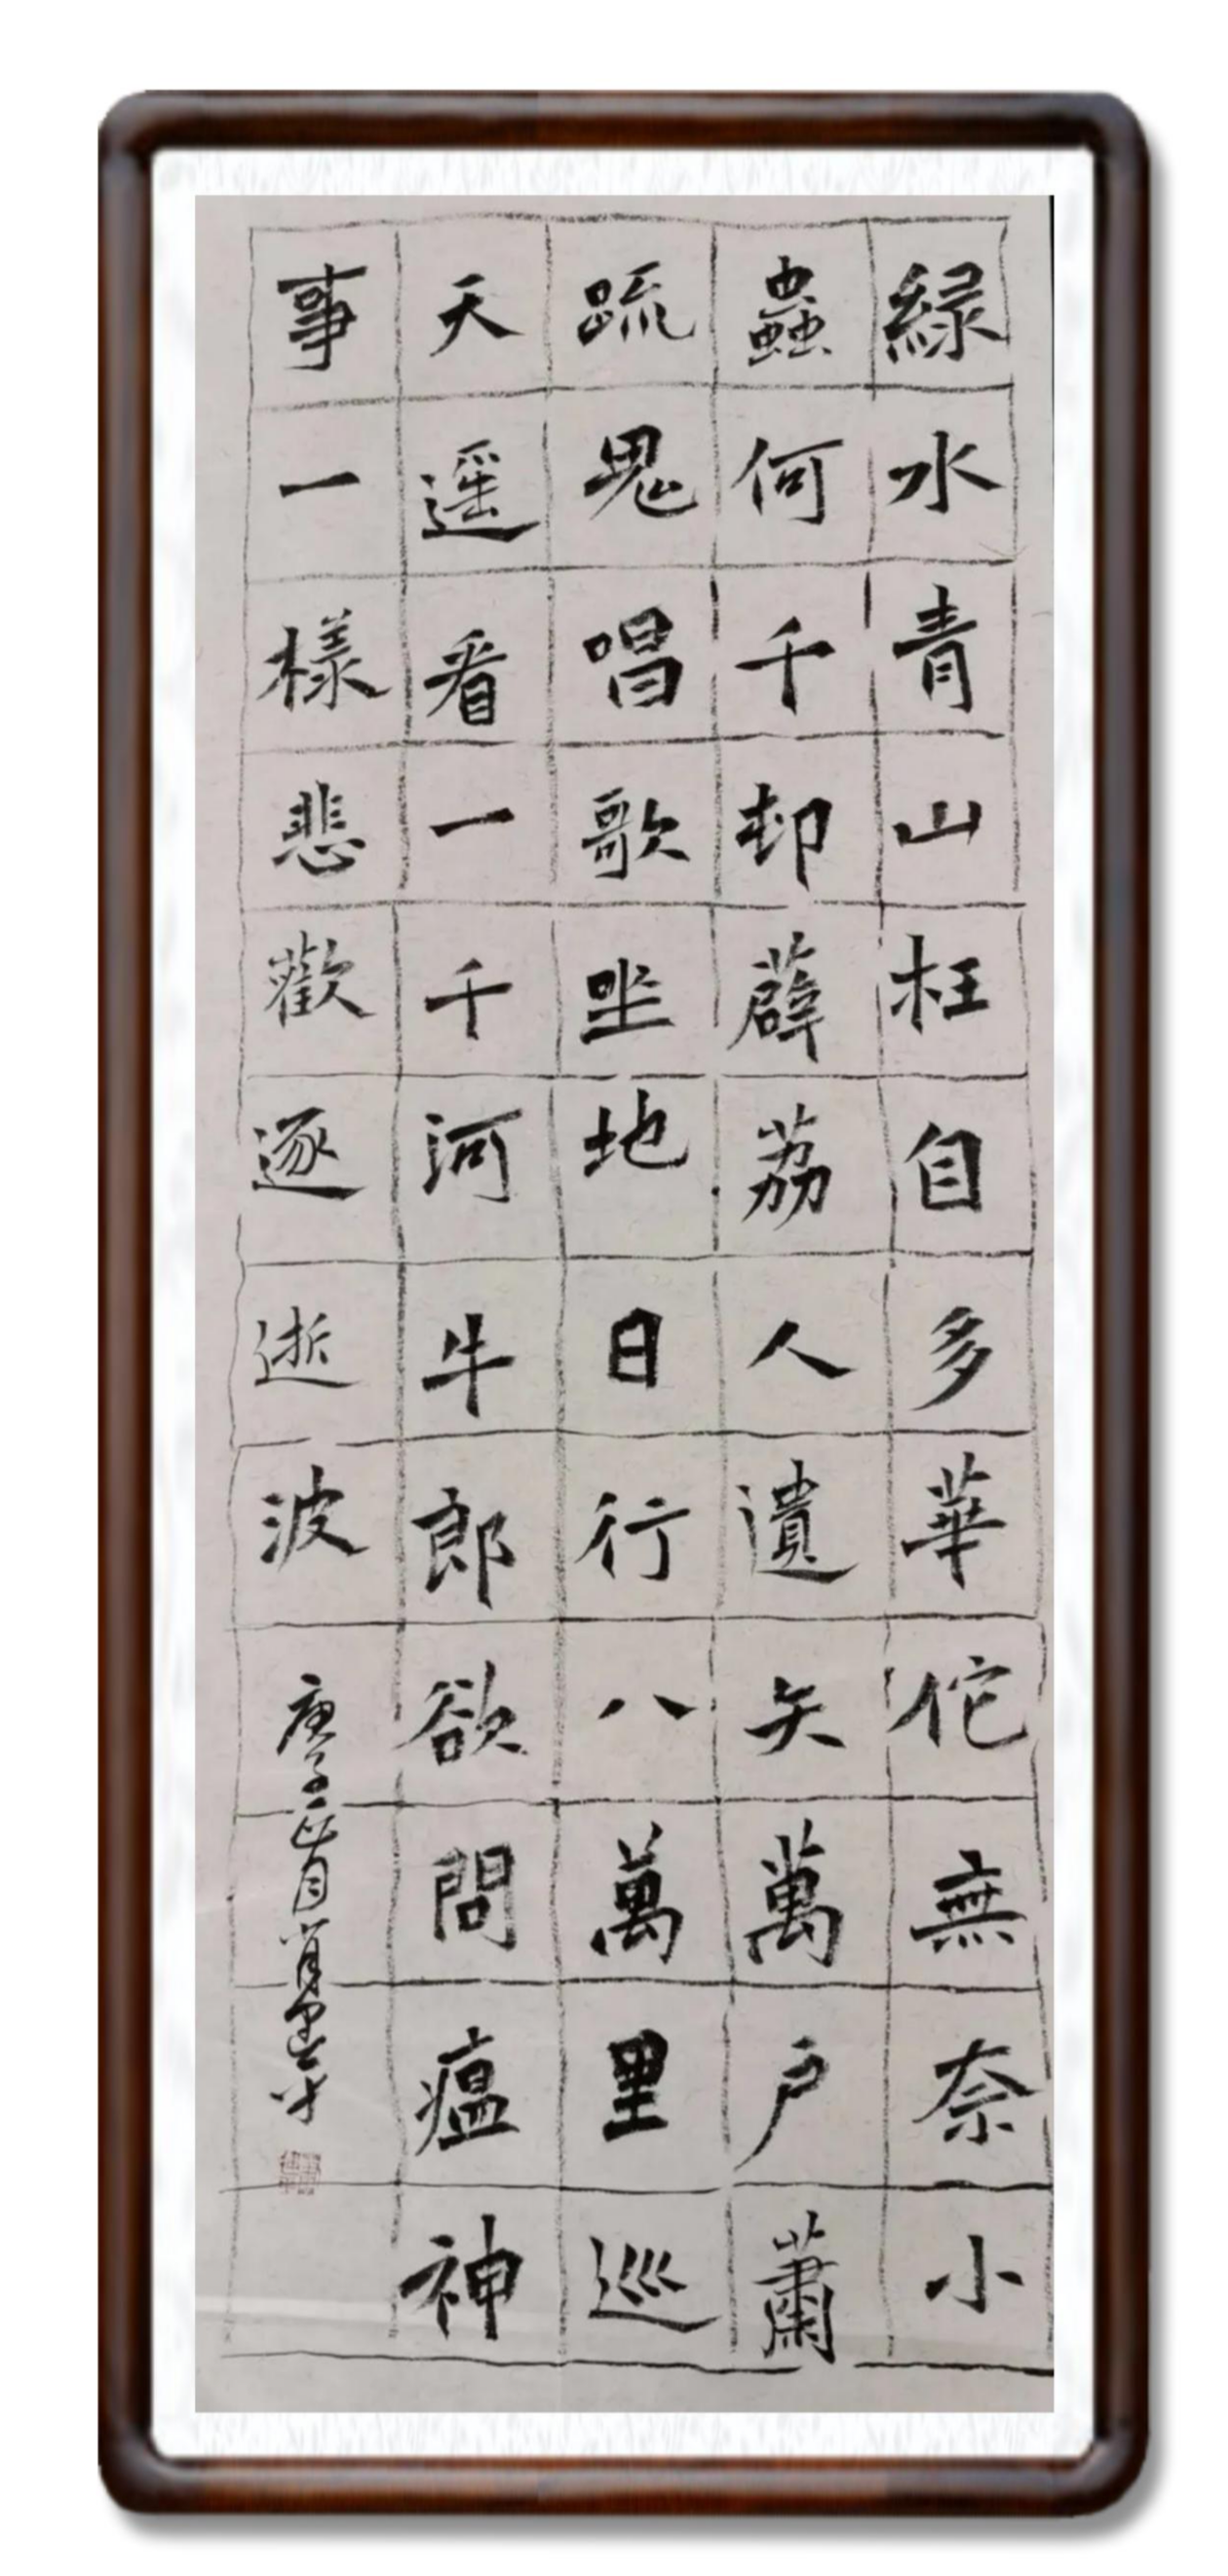 緑水青山枉自多華佗無奈小
蟲何千邨薜荔人遺矢萬户蕭
䟽鬼唱歌坐地日行八萬里巡
天遥看一千河牛郎欲問瘟神
事一樣悲歡逐逝波
庚子正月肖